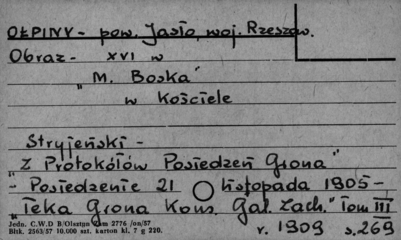 OŁPINY - pow. Jasło, woj. Rzeszów.
Obraz - XVI w
"M. Boska"
w Kościele
Stryjeński -
"Z Protokółów Posiedzeń Grona"
- Posiedzenie 21 listopada 1905 -
"Teka Grona Kons. Gal. Zach." Tom III
r. 1909 s. 269
Jedn. C.W.D B/Olsztyn Zam 2776 /on/57
Blhk. 2563/57 10.000 szt. karton kl. 7 g 220.